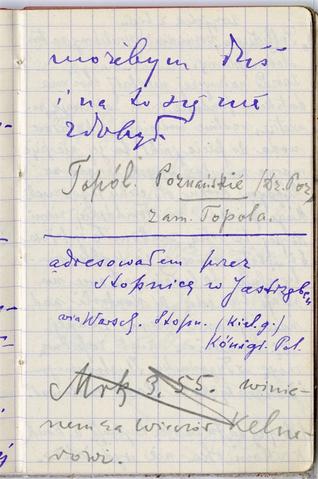 możebym dziś
i na to się nie
zdobył.
Topól. Poznańskie /Dz. Poz
zam. Topola.
adresowałem przez
Stopnicę w Jastrzęb
via Warsch. Stopn. (Kiel. g.)
Königr. Pol.
Mrk 3.55. winie-
nem za wieczór Kelne-
rowi.